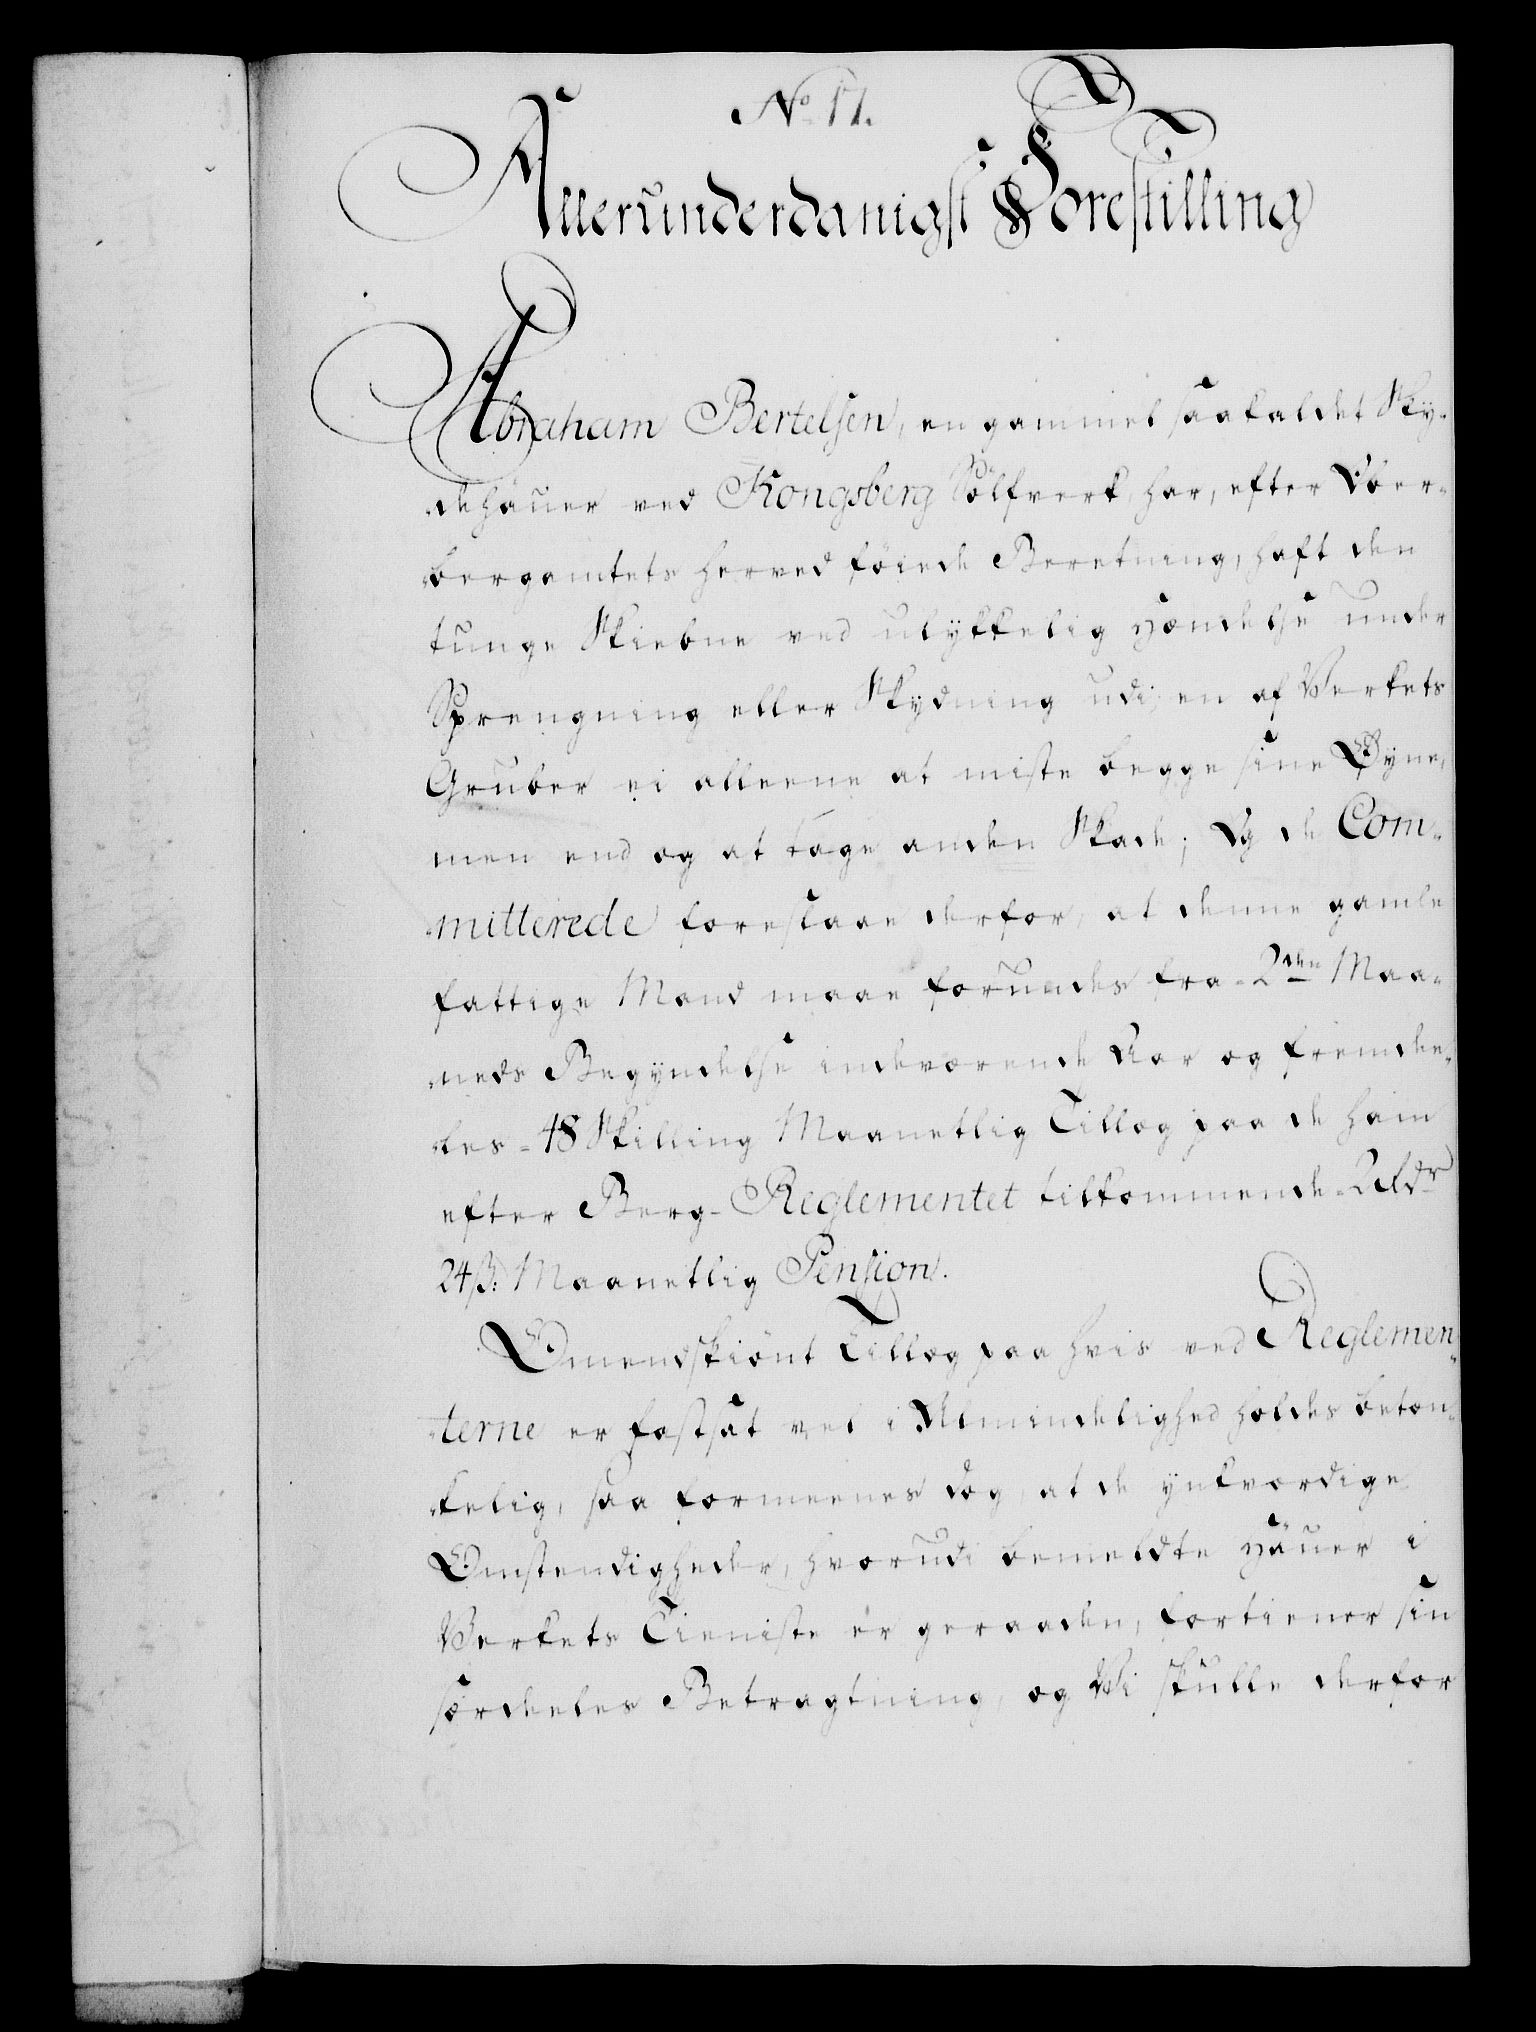 No 17.
Allerunderdanigst Forestilling
Abraham Bertelsen, en gammel saakaldet Sky-
dehäuer ved Kongsberg Sölfverk, har, efter Ober-
bergamtets herved föiede Beretning, haft den
tunge Skiebne ved ulykkelig Hændelse under
Sprengning eller Skydning udi en af Verkets
Gruber ei alleene at miste begge sine Øyne,
men end og at tage anden Skade; Og de Com-
mitterede foreslaae derfor, at denne gamle
fattige Mand maae forundes fra 2den Maa-
neds Begyndelse indeværende Aar og fremde-
les 48 Skilling Maanetlig Tillæg paa de ham
efter Berg-Reglementet tilkommende 2 Rdr
24 ß: Maanetlig Pension.
Omendskiönt Tillæg paa hvis ved Reglemen-
terne er fastsat vel i Almindelighed holdes betæn-
kelig, saa formeenes dog, at de ynkværdige
Omstendigheder, hvorudi bemeldte Häuer i
Verkets Tieniste er geraaden, fortiener sin
særdeles Betragtning, og Vi skulle derfor